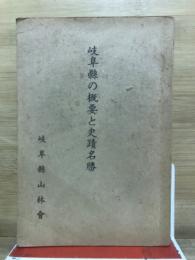 岐阜縣の概要と史蹟名勝
岐阜縣山林會